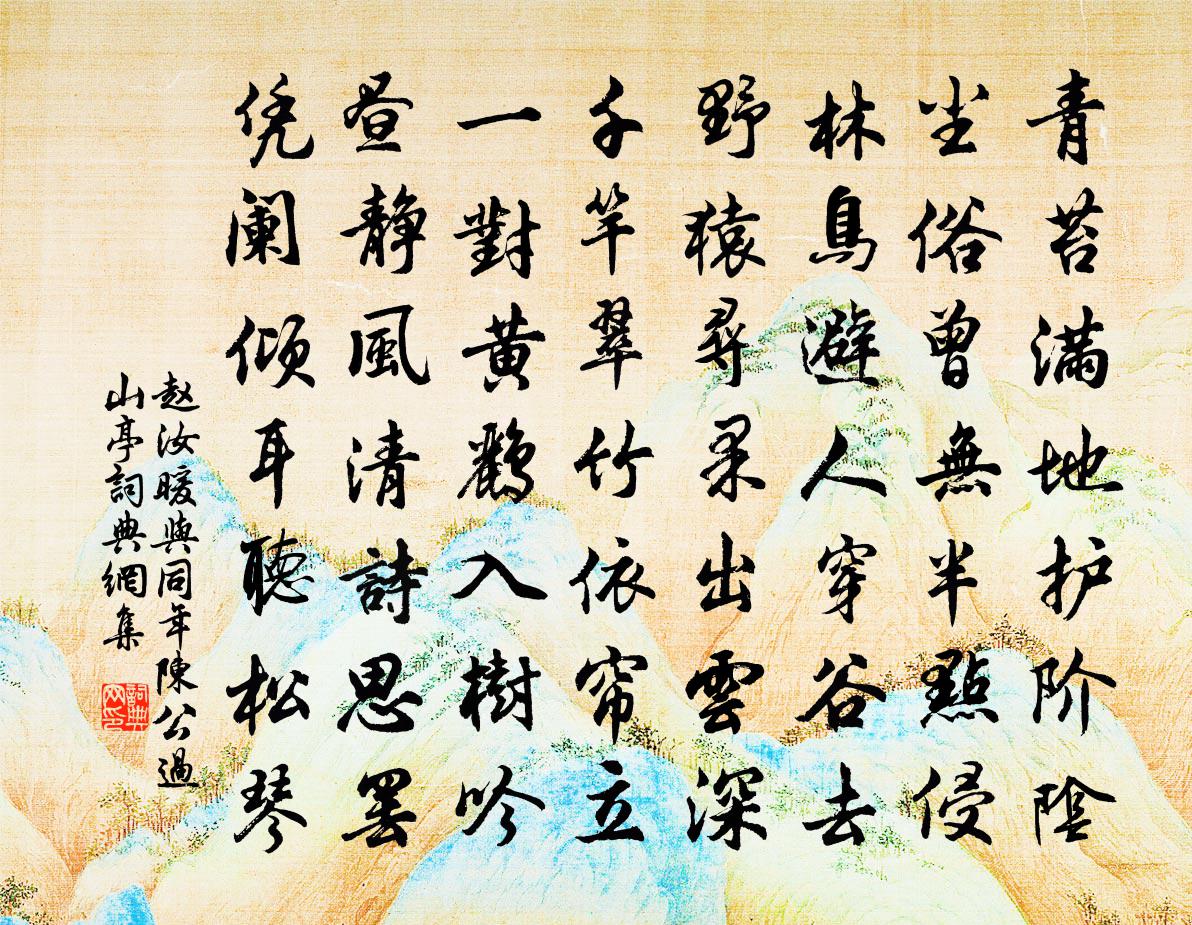 青苔满地护阶陰
尘俗曾無半點侵
林鳥避人穿谷去
野猿尋果出雲深
千竿翠竹依帘立
一對黄鸝入樹吟
昼静風清詩思罢
凭阑倾耳聽松琴
赵汝暖與同年陳公過
山亭詞典網集
詞典
网印